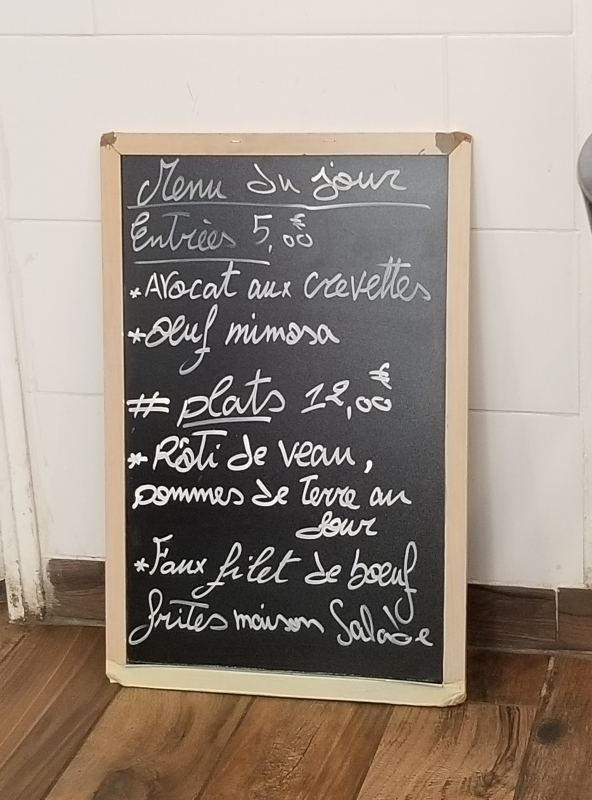 Menu du jour
Entrées 5,00€
*Avocat aux crevettes
*oeuf mimosa
# plats 12,00€
*Rôti de veau,
pommes de terre au
four
*Faux filet de boeuf
frites maison Salade